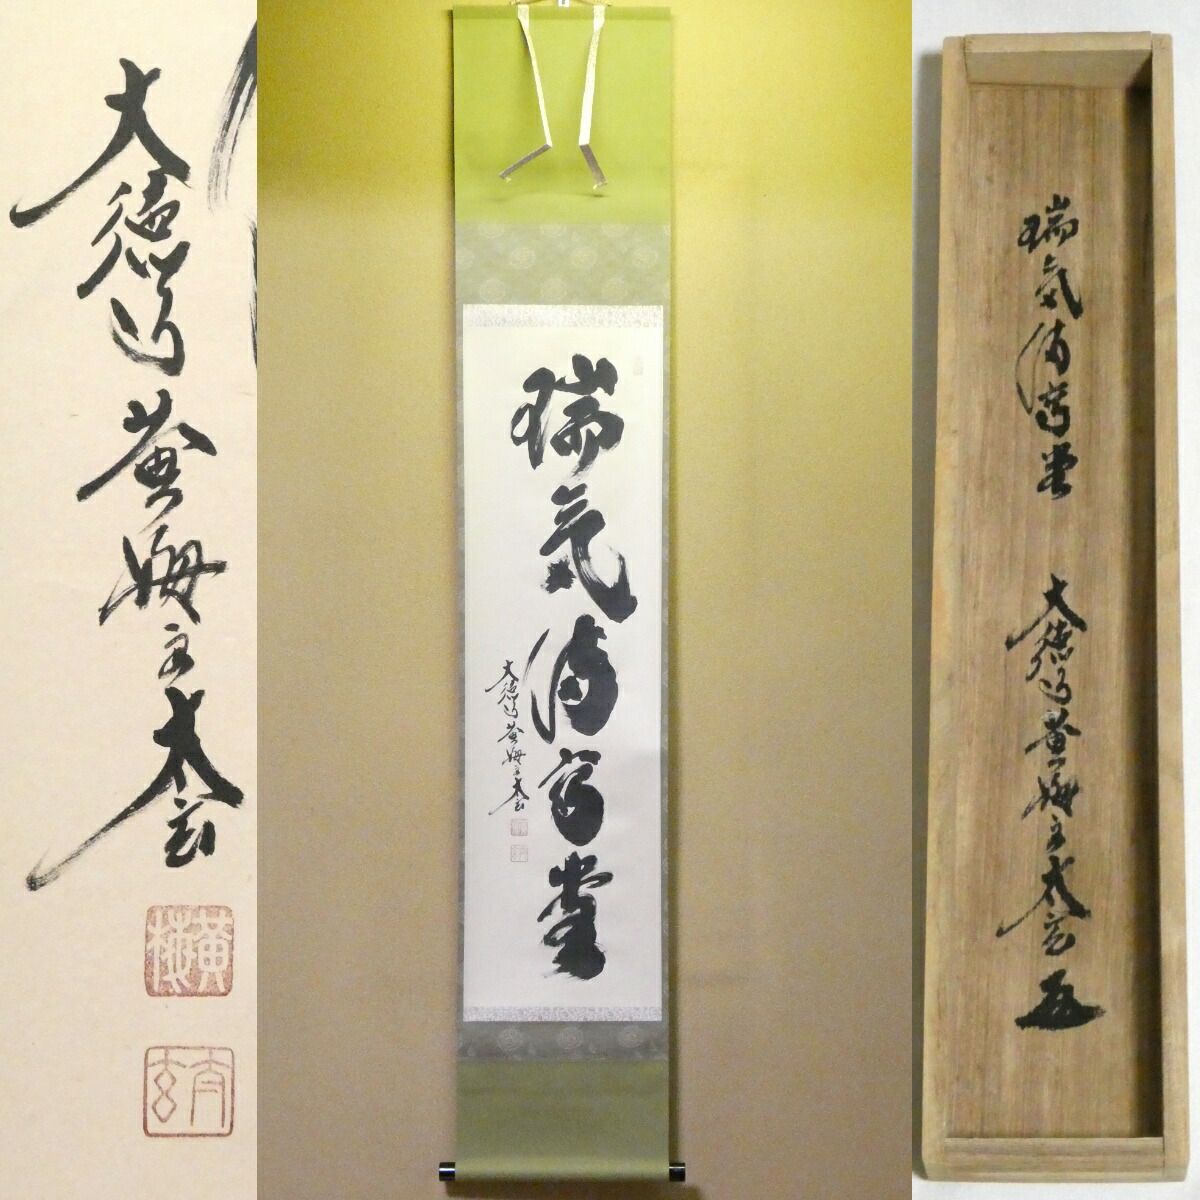 大徳寺 黄梅主 太玄
黄梅
太玄
瑞気満高堂
大徳寺 黄梅主 太玄
瑞気満高堂
大徳寺 黄梅主 太玄